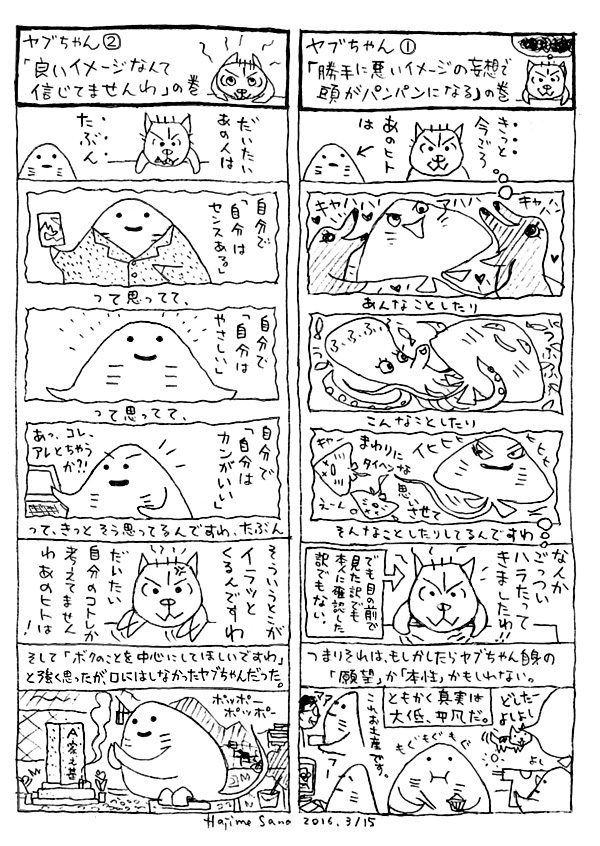 ヤブちゃん①
「勝手に悪いイメージの妄想で
頭がパンパンになる」の巻
きっと
今ごろ
あのヒト
は
キャハハ
キャハハ
あんなことしたり
ふ、ふ、ふ、ふ
うふふふ
こんなことしたり
イヒヒ
ヒヒヒ
まわりに
タイヘンな
思い
させて
キャー
えーん。
そんなことしたりしてるんですわ
なんか
ごっつい
ハラたって
きましたわ
でも目の前で
見た訳でも
本人に確認した
訳でもない。
つまりそれは、もしかしたらヤブちゃん自身の
「願望」か「本性」かもしれない。
ともかく真実は
大低、平凡だ。
どしたー
よしよし
よし
もぐもぐもぐ
これお土産です。
ヤブちゃん②
「良いイメージなんて
信じてませんわ」の巻
だいたい
あの人は
た、ぶ、ん、
自分で
「自分は
センスある」
って思ってて、
自分で
「自分は
やさしい」
って思ってて、
自分で
「自分は
カンがいい」
あっ、コレ、
アレとちゃう
か?!
って、きっとそう思ってるんですわ、たぶん
そういうとこが
イラッと
くるんですわ
だいたい
自分のコトしか
考えてません
わあのヒトは!
そして「ボクのことを中心にしてほしいですわ」
と強く思ったが口にはしなかったヤブちゃんだった。
ポッポー
ポッポー
A家之墓
Hajime Sano 2016.3/15